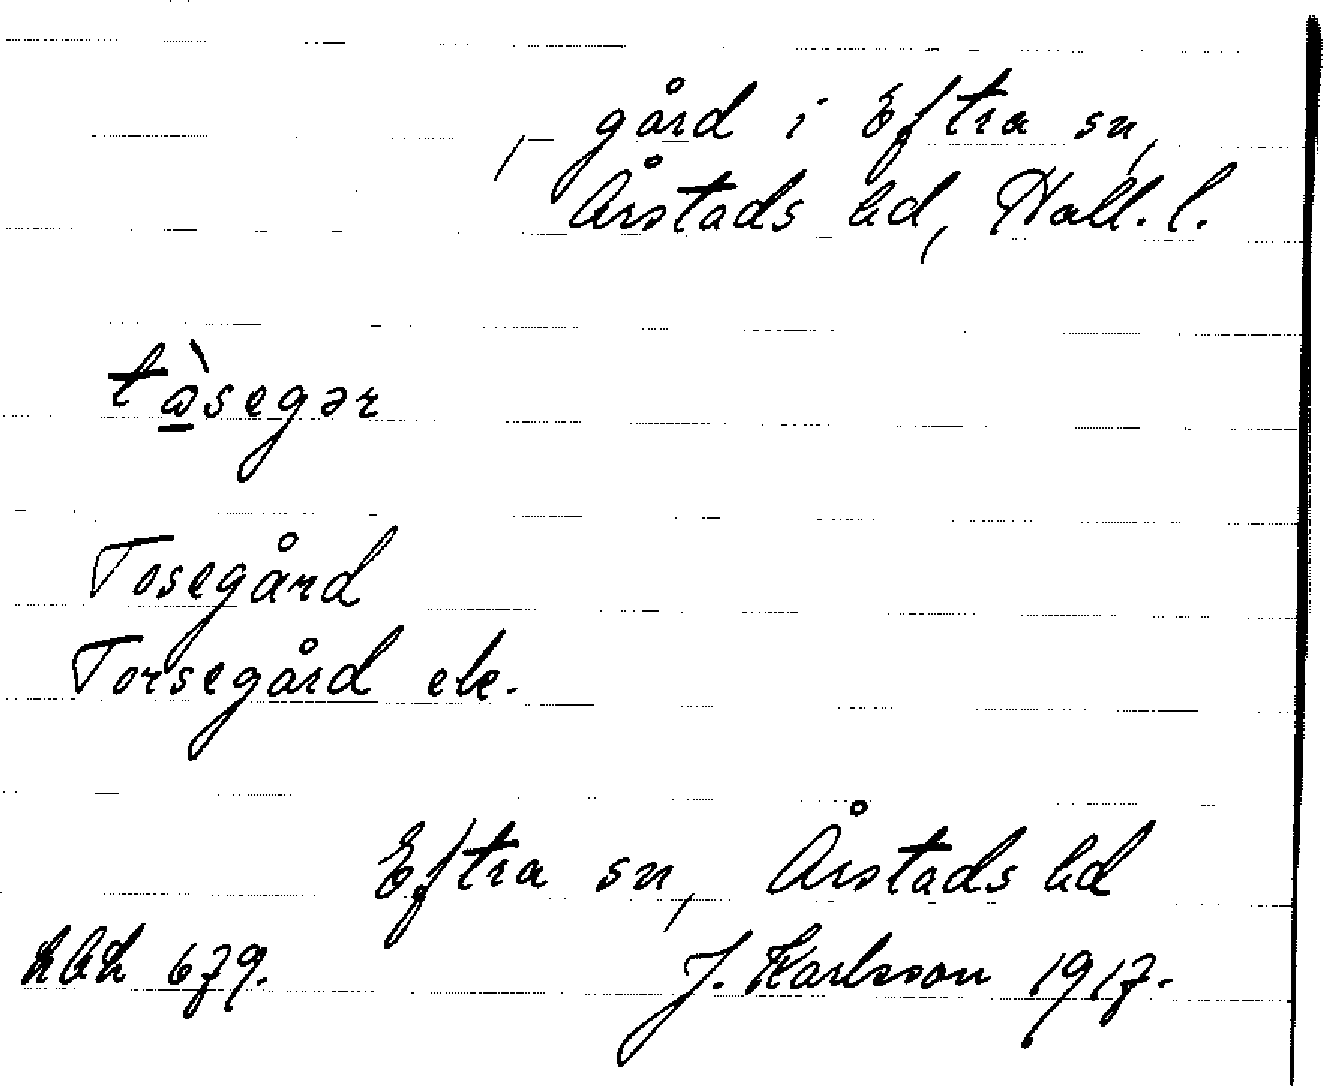 , gård i Eftra sn,
Årstads hd, Hall. l.
tås̀egər
Tosegård
Torsegård ek.
Eftra sn, Årstads hd
679.
J. Karlsson 1917.